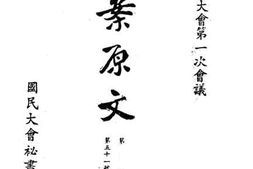 大會第一次會議
案原文
第
第五十一號
國民大會秘書